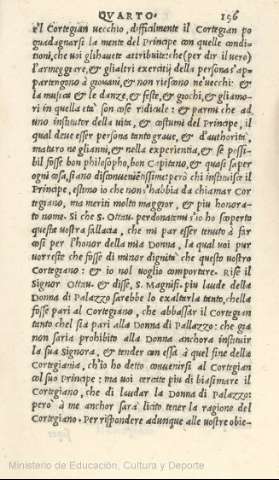 QVARTO. 156
el Cortegian vecchio, difficilmente il Cortegian po
guadagnarsi la mente del Principe con quelle condi-
tioni, che voi gli hauete attribuite: che (per dir il uero)
l'armeggiare, & gli altri exercitij della persona s'ap-
partengono à giouani, & non riescono ne uecchi: &
la musica & le danze, & feste, & giochi, & gli amo-
ri in quella età son cose ridicule: & parmi che ad
uno institutor della uita, & costumi del Principe, il
qual deue esser persona tanto graue, & d'authorità,
maturo ne gli anni, & nella experientia, & se possi-
bil fosse bon philosopho, bon Capitano, & quasi saper
ogni cosa, siano disconueneuolissime: però chi instituisce il
Principe, estimo io che non s'habbia da chiamar Cor
tegiano, ma meriti molto maggior, & piu honora-
to nome. Si che S. Ottau. perdonatemi s'io ho scoperto
questa uostra fallacia, che mi par esser tenuto à far
cosi per l'honor della mia Donna, la qual uoi pur
uorreste che fosse di minor dignità che questo uostro
Cortegiano: & io nol uoglio comportare. Rise il
Signor Ottau. & disse, S. Magnifi. piu laude della
Donna di Palazzo sarebbe lo exaltarla tanto, chella
fosse pari al Cortegiano, che abbassar il Cortegian
tanto chel sia pari alla Donna di Pallazzo: che già
non saria prohibito alla Donna anchora instituir
la sua Signora, & tender con essa à quel fine della
Cortegiania, ch'io ho detto conuenirsi al Cortegian
col suo Principe: ma uoi cercate piu di biasimare il
Cortegiano, che di laudar la Donna di Palazzo:
però à me anchor sarà licito tener la ragione del
Cortegiano. Per rispondere adunque alle uostre obie-
Ministerio de Educación, Cultura y Deporte